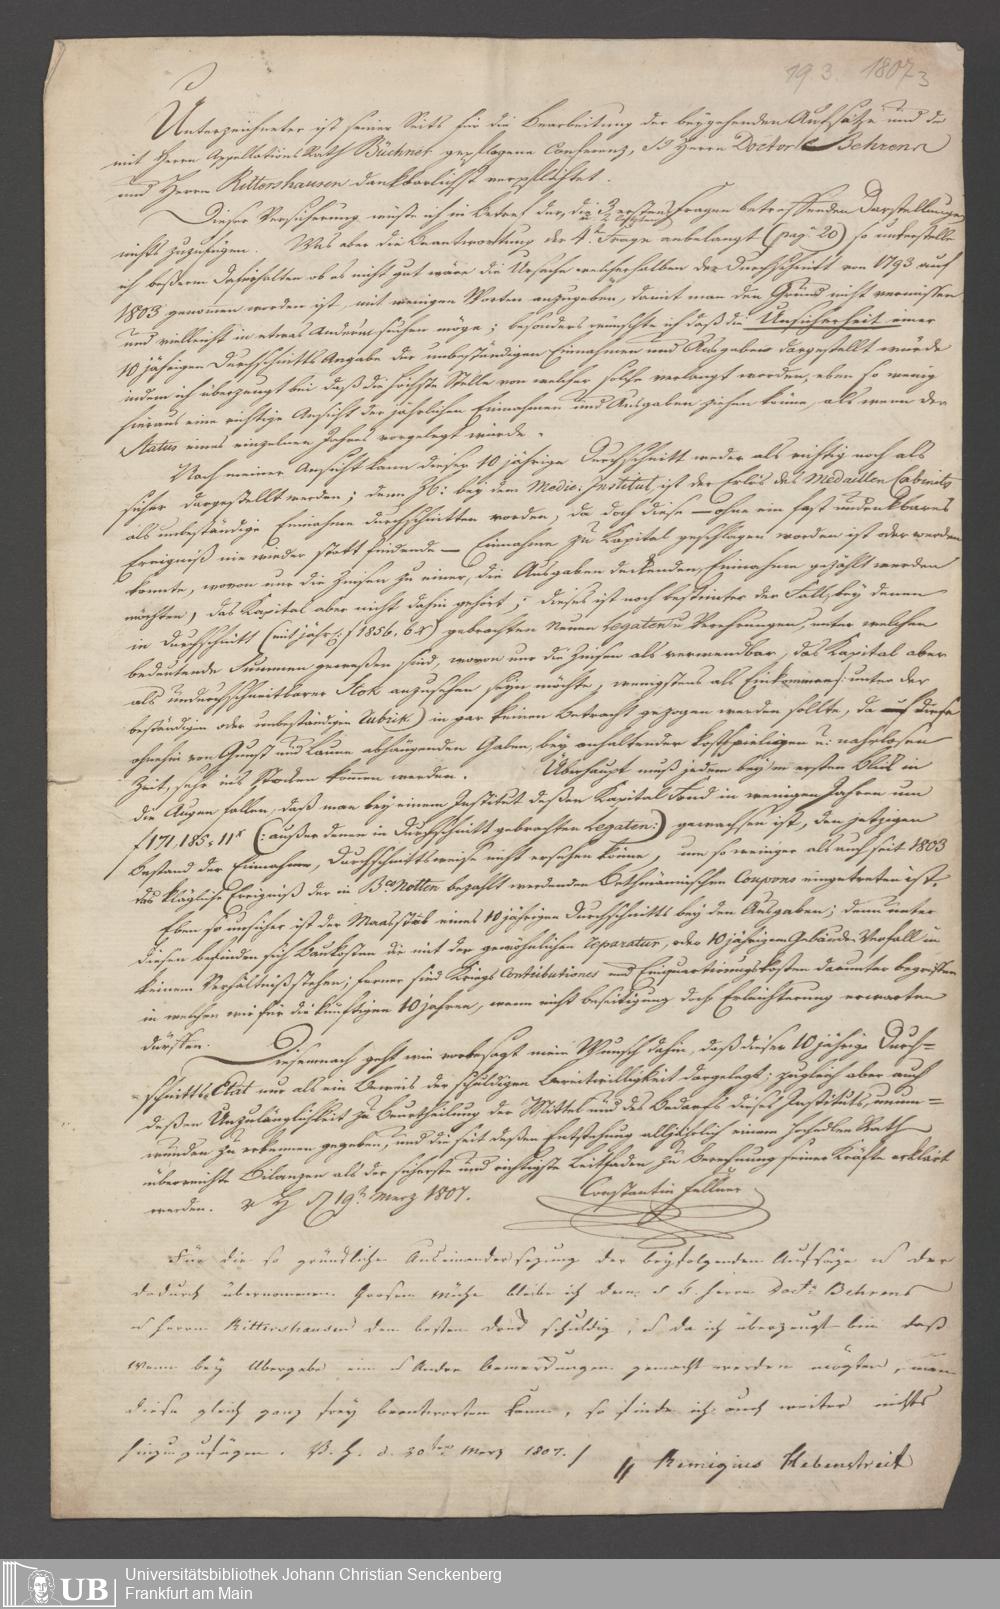 19. 3. 1807
3
Unterzeichneter ist seiner Seits für die Bearbeitung der beygehenden Aufsätze und die
mit Herrn Appellations Rath Büchner gepflogene Conferenz, Herrn Doctor Behrens
und Herrn Rittershausen dankbarlichst verpflichtet.
Dieser Versicherung wüste ich in Betref der, die 3 ersten Fragen betreffenden Darstellungen
nichts zuzufügen. Was aber die Beantwortung der 4ten Frage anbelangt (pag: 20) so unterstelle
ich beßerm Dafürhalten ob es nicht gut wäre die Ursache welcherhalben der Durchschnitt von 1793 auf
1803 genommen worden ist, mit wenigen Worten anzugeben, damit man den Grund nicht vermissen
und vielleicht in etwas Anderm suchen möge; besonders wünschte ich daß die Unsicherheit einer
10 jährigen Durchschnitts Angabe der unbeständigen Einnahmen und Ausgaben dargestellt würde
indem ich überzeugt bin daß die höchste Stelle von welcher solche verlangt worden, eben so wenig
hieraus eine richtige Ansicht der jährlichen Einnahmen und Ausgaben ziehen könne, als wenn der
Status eines einzelnen Jahres vorgelegt würde.
Nach meiner Ansicht kann dieser 10 jährige Durchschnitt weder als richtig noch als
sicher dargestellt werden; denn bey dem Medic: Institut, ist der Erlös des Medaillen Cabinets
als unbeständige Einnahme durchschnitten worden, da doch diese — ohne ein fast undenkbares
Ereigniß nie wieder statt findende — Einnahme zu Kapital geschlagen worden ist oder werden
konnte, wovon nur die Zinsen zu einer, die Ausgaben deckenden, Einnahme gezählt werden
möchten, das Kapital aber nicht dahin gehört; dieses ist noch bestimter der Fall, bey denen
in Durchschnitt (mit jährl: f 1856. 6 x) gebrachten Neuen Legaten u Verehrungen, unter welchen
bedeutende Summen gewesen sind, wovon nur die Zinsen als verwendbar, das Kapital aber
als undurchschneitbarer Stok anzusehen seyn möchte, wenigstens als Einkommens (: unter der
beständigen oder unbeständigen Rubrik) in gar keinen Betracht gezogen werden sollte, da diese
ohnehin von Gunst und Laune abhängenden Gaben, bey anhaltender kostspieligen u: nahrlosen
Zeit, sehr ins Stocken kommen werden. Überhaupt muß jedem beym ersten Blick in
die Augen fallen, daß man bey einem Institut deßen Kapital Fond in wenigen Jahren um
f 171,185. 11 x (: außer denen in Durchschnitt gebrachten Legaten:) gewachsen ist, den jetzigen
Bestand der Einnahme, Durchschnittsweise nicht ersehen könne, um so weniger als auch seit 1803
das klägliche Ereigniß der in Bco Notten bezahlt werdenden Bethmännischen Coupons eingetreten ist.
Eben so unsicher ist der Maasstab eines 10 jährigen Durchschnitts bey den Ausgaben; denn unter
diesen befinden sich Baukosten die mit der gewöhnlichen Reparatur, oder 10 jährigem Gebäude Verfall in
keinem Verhältniß stehen; ferner sind Kriegs Contributiones und Einquartirungskosten darunter begriffen
in welchen wir für die künftigen 10 Jahren, wenn nicht Befreiung doch Erleichterung erwarten
dürffen. Diesemnach geht wie vorbesagt mein Wunsch dahin, daß dieser 10 jährige Durch=
schnitts Etat nur als ein Beweis der schuldigen Bereitwilligkeit dargelegt; zugleich aber auch
deßen Unzulänglichkeit zu Beurtheilung der Mittel und des Bedarfs dieses Instituts, unum=
wunden zu erkennen gegeben, und die seit deßen Entstehung alljährlich einem Hochedlen Rath
überreichte Bilanzen als der sicherste und richtigste Leitfaden zu Berechnung seiner Kräfte erklärt
werden. 19 Merz 1807. Constantin Fellner
Für die so gründliche Auseinandersezung der beyfolgenden Aufsäze u der
dadurch übernommenen Grosen Mühe bleibe ich denen Herrn Doct: Behrens
u Herrn Rittershausen den besten Danck schuldig, u da ich überzeugt bin daß
wenn bey Übergabe ein u Andre Bemerckungen gemacht werden mögten, man
diese gleich ganz frey beantworten kann, so finde ich auch weiter nichts
hinzuzufügen. d. 20ten Merz 1807.
Remigius Hebenstreit
UB
Universitätsbibliothek Johann Christian Senckenberg
Frankfurt am Main